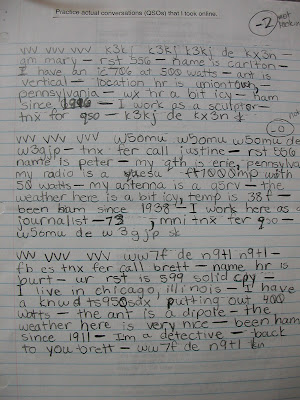 Practice actual conversations (QSOs) that I took online.
-2
vvv vvv vvv k3kj k3kj k3kj de kx3n -
am mary - rst 556 - name is carlton -
I have an ic 706 at 500 watts - ant is
vertical - location hr is uniontown,
pennsylvania - wx hr a bit icy - ham
since 1996 - I work as a sculptor -
tnx for qso - k3kj de kx3n
-0
vvv vvv vvv w5omu w5omu w5omu de
w3gjp - tnx fer call justine - rst 556
name is peter - my qth is erie, pennsylvania
my radio is a yaesu ft1000mp with
50 watts - my antenna is a g5rv - the
weather here is a bit icy, temp is 38 f -
been ham since 1938 - I work here as a
journalist - 73, mni tnx fer qso -
w5omu de w3gjp sk
vvv vvv vvv ww7f de n9tl n9tl -
fb es tnx fer call brett - name hr is
burt - ur rst is 599 solid cpy -
I live in chicago, illinois - I have
a knwd ts950sdx putting out 400
watts - the ant is a dipole - the
weather here is very nice - been ham
since 1911 - Im a detective - back
to you brett - ww7f de n9tl kn